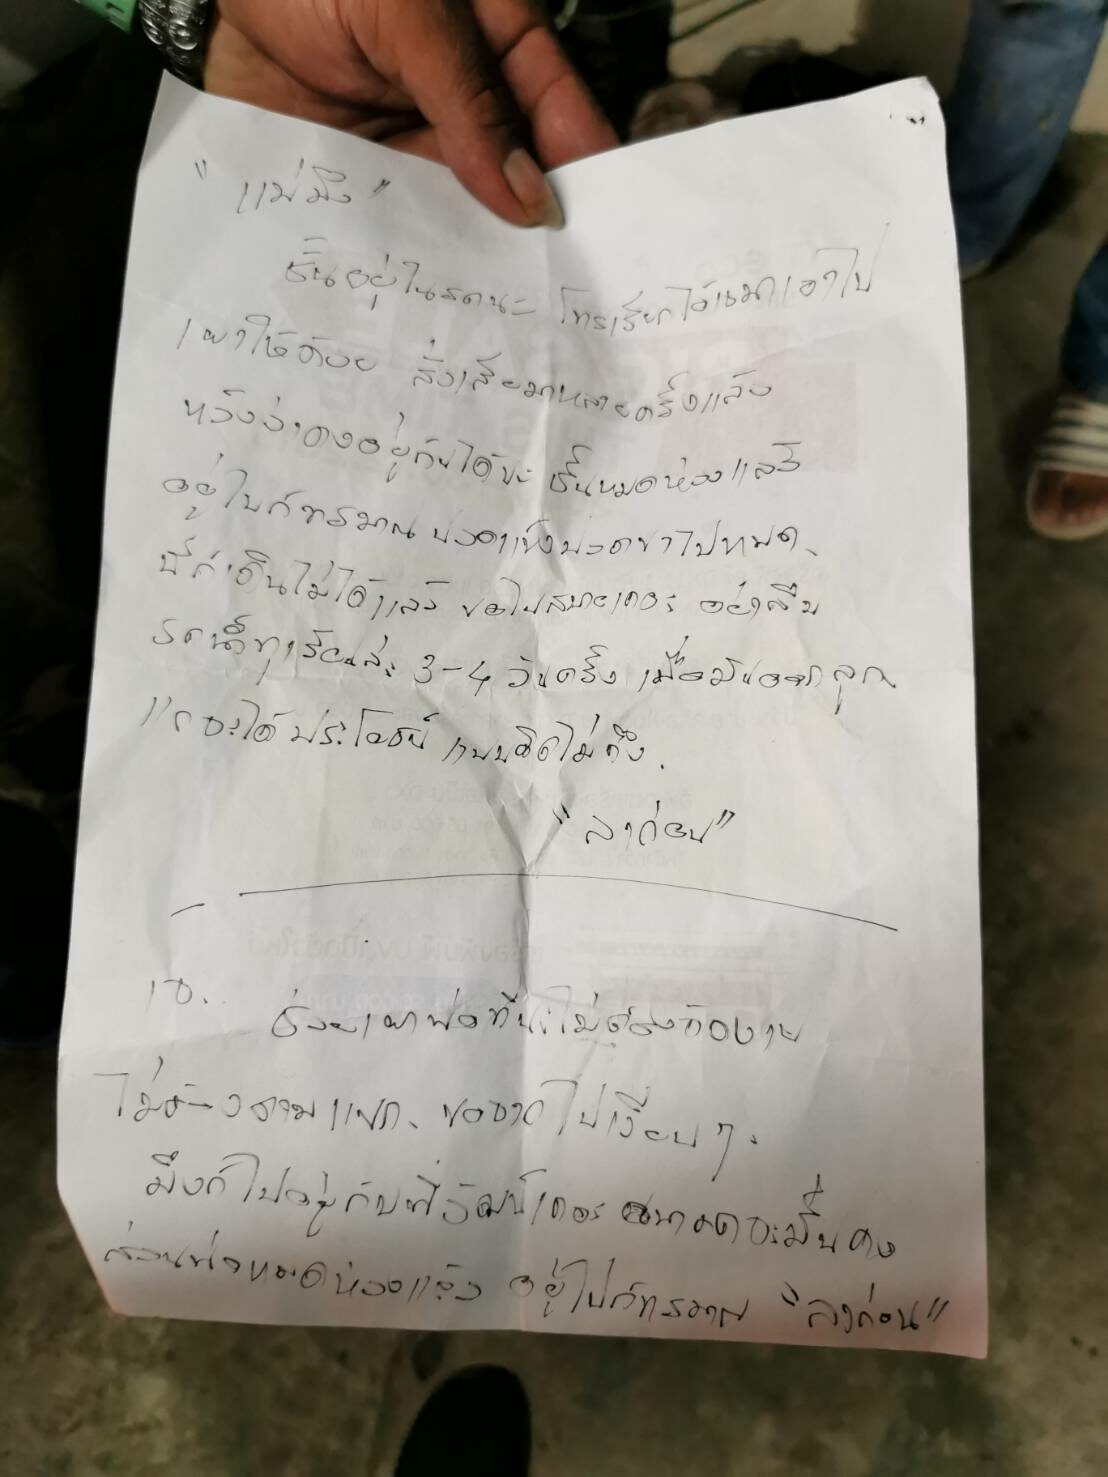 "แม่มึง"
ชั้นอยู่ในรถนะ โทรเรียกให้เขมาเอาไป
เผาให้ด้วย สั่งเสียมาหลายครั้งแล้ว
หวังว่าคงอยู่กันได้นะ ชั้นหมดห่วงแล้ว
อยู่ไปก็ทรมาน ปวดแข้งปวดขาไปหมด
นี่ก็เดินไม่ได้แล้ว ขอไปสบายเถอะ อย่าลืม
รดน้ำทุเรียนล่ะ 3-4 วันครั้ง เมื่อมันออกลูก
แกจะได้ประโยชน์ แบบคิดไม่ถึง.
"ลาก่อน"
ช่วยเผาพ่อทีนะไม่ต้องจัดงาน
ไม่ต้องสวม แขก. ขอจากไปเงียบๆ.
มึงก็ไปอยู่กับพี่วัฒน์เถอะ อนาคตจะมั่นคง
ส่วนพ่อหมดห่วงแล้ว อยู่ไปก็ทรมาน "ลาก่อน"